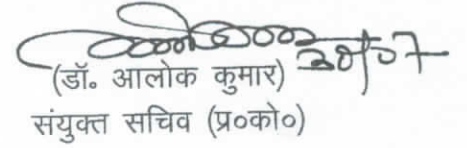 30/07
(डॉ० आलोक कुमार)
संयुक्त सचिव (प्र०को०)